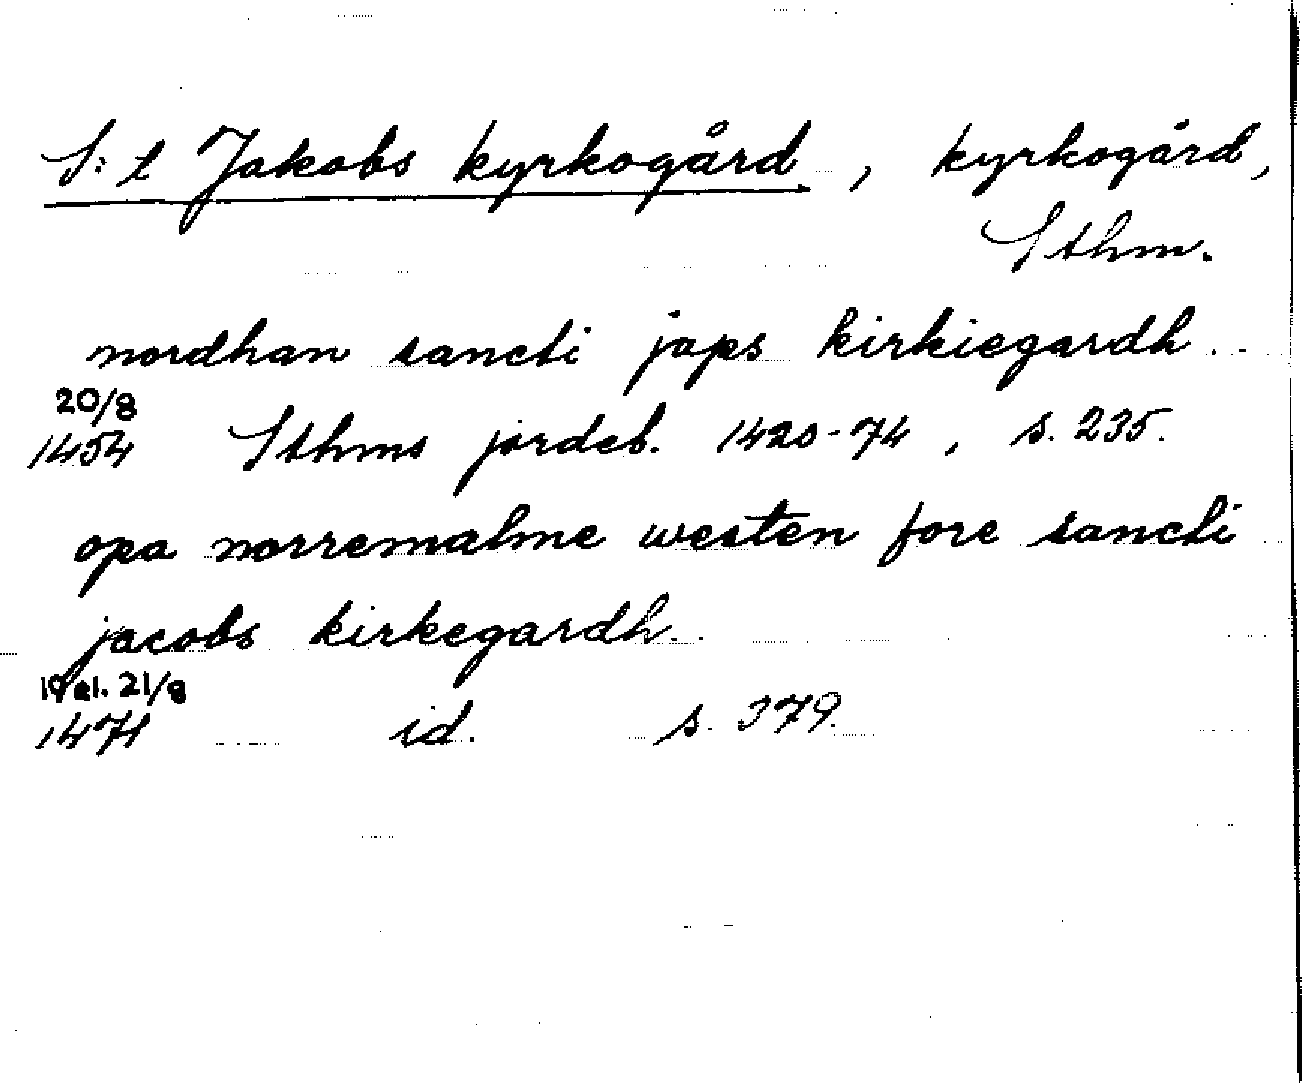 S:t Jakobs kyrkogård, kyrkogård,
Sthm.
nordhan sancti japs kirkiegardh..
20/8
1454 Sthms jordeb. 1420-74, s. 235.
opa norremalme westen fore sancti
jacobs kirkegardh.
19 el. 21/8
1471 id. s. 379.